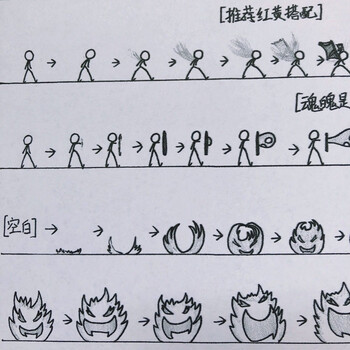 [推荐红黄搭配]
[魂魄是
[空白]